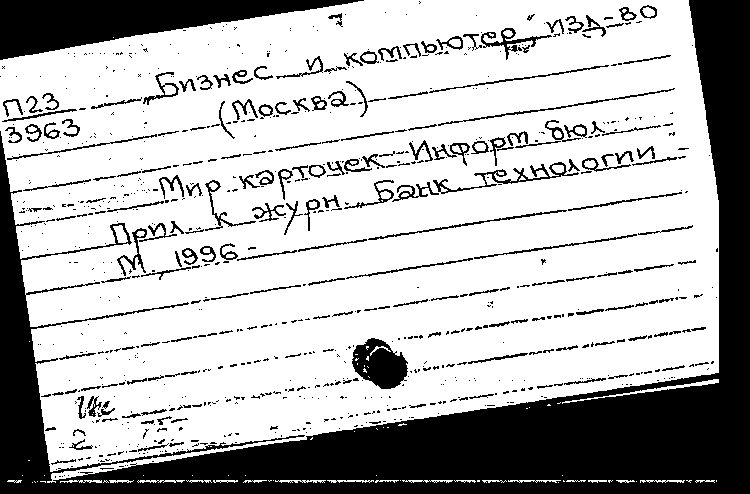 7
П23 „Бизнес и компьютер", изд-во
3963 (Москва)
Мир карточек: Информ. бюл.:
Прил. к журн. „Банк. технологии".-
М., 1996 -
2